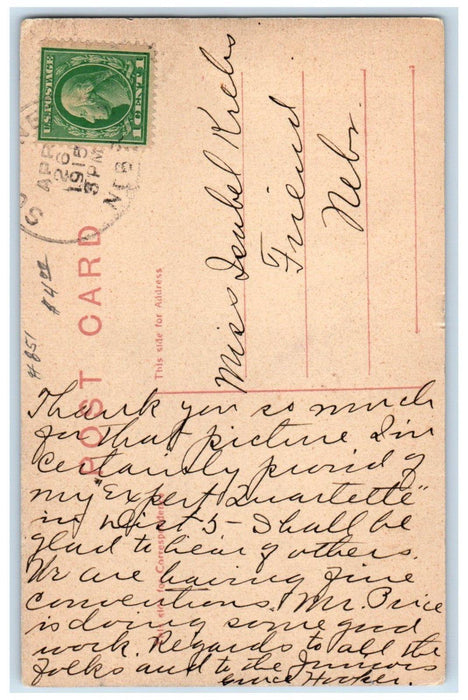 U.S. POSTAGE
1 CENT 1
APR
26
1915
3 PM
NEB
#851
$4.00
POST CARD
This side for Address
This side for Correspondence
Miss Isabel Krebs
Friend
Nebr.
Thank you so much
for that picture I'm
certainly proud of
my "Expert Quartette"
in Dist 5 - Shall be
glad to hear of others.
We are having fine
conventions. Mr. Price
is doing some good
work. Regards to all the
folks and to the Juniors
Grace Hooker.